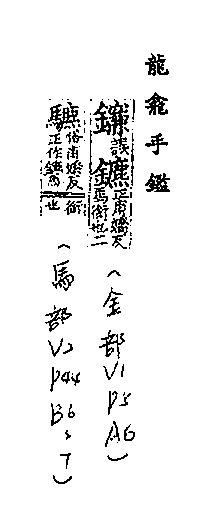 龍龕手鑑
誤鑣正甫嬌反馬銜也二
(金部V1 P5 A6)
俗甫嬌反正作鑣馬銜也
(馬部V2 P44 B6,7)